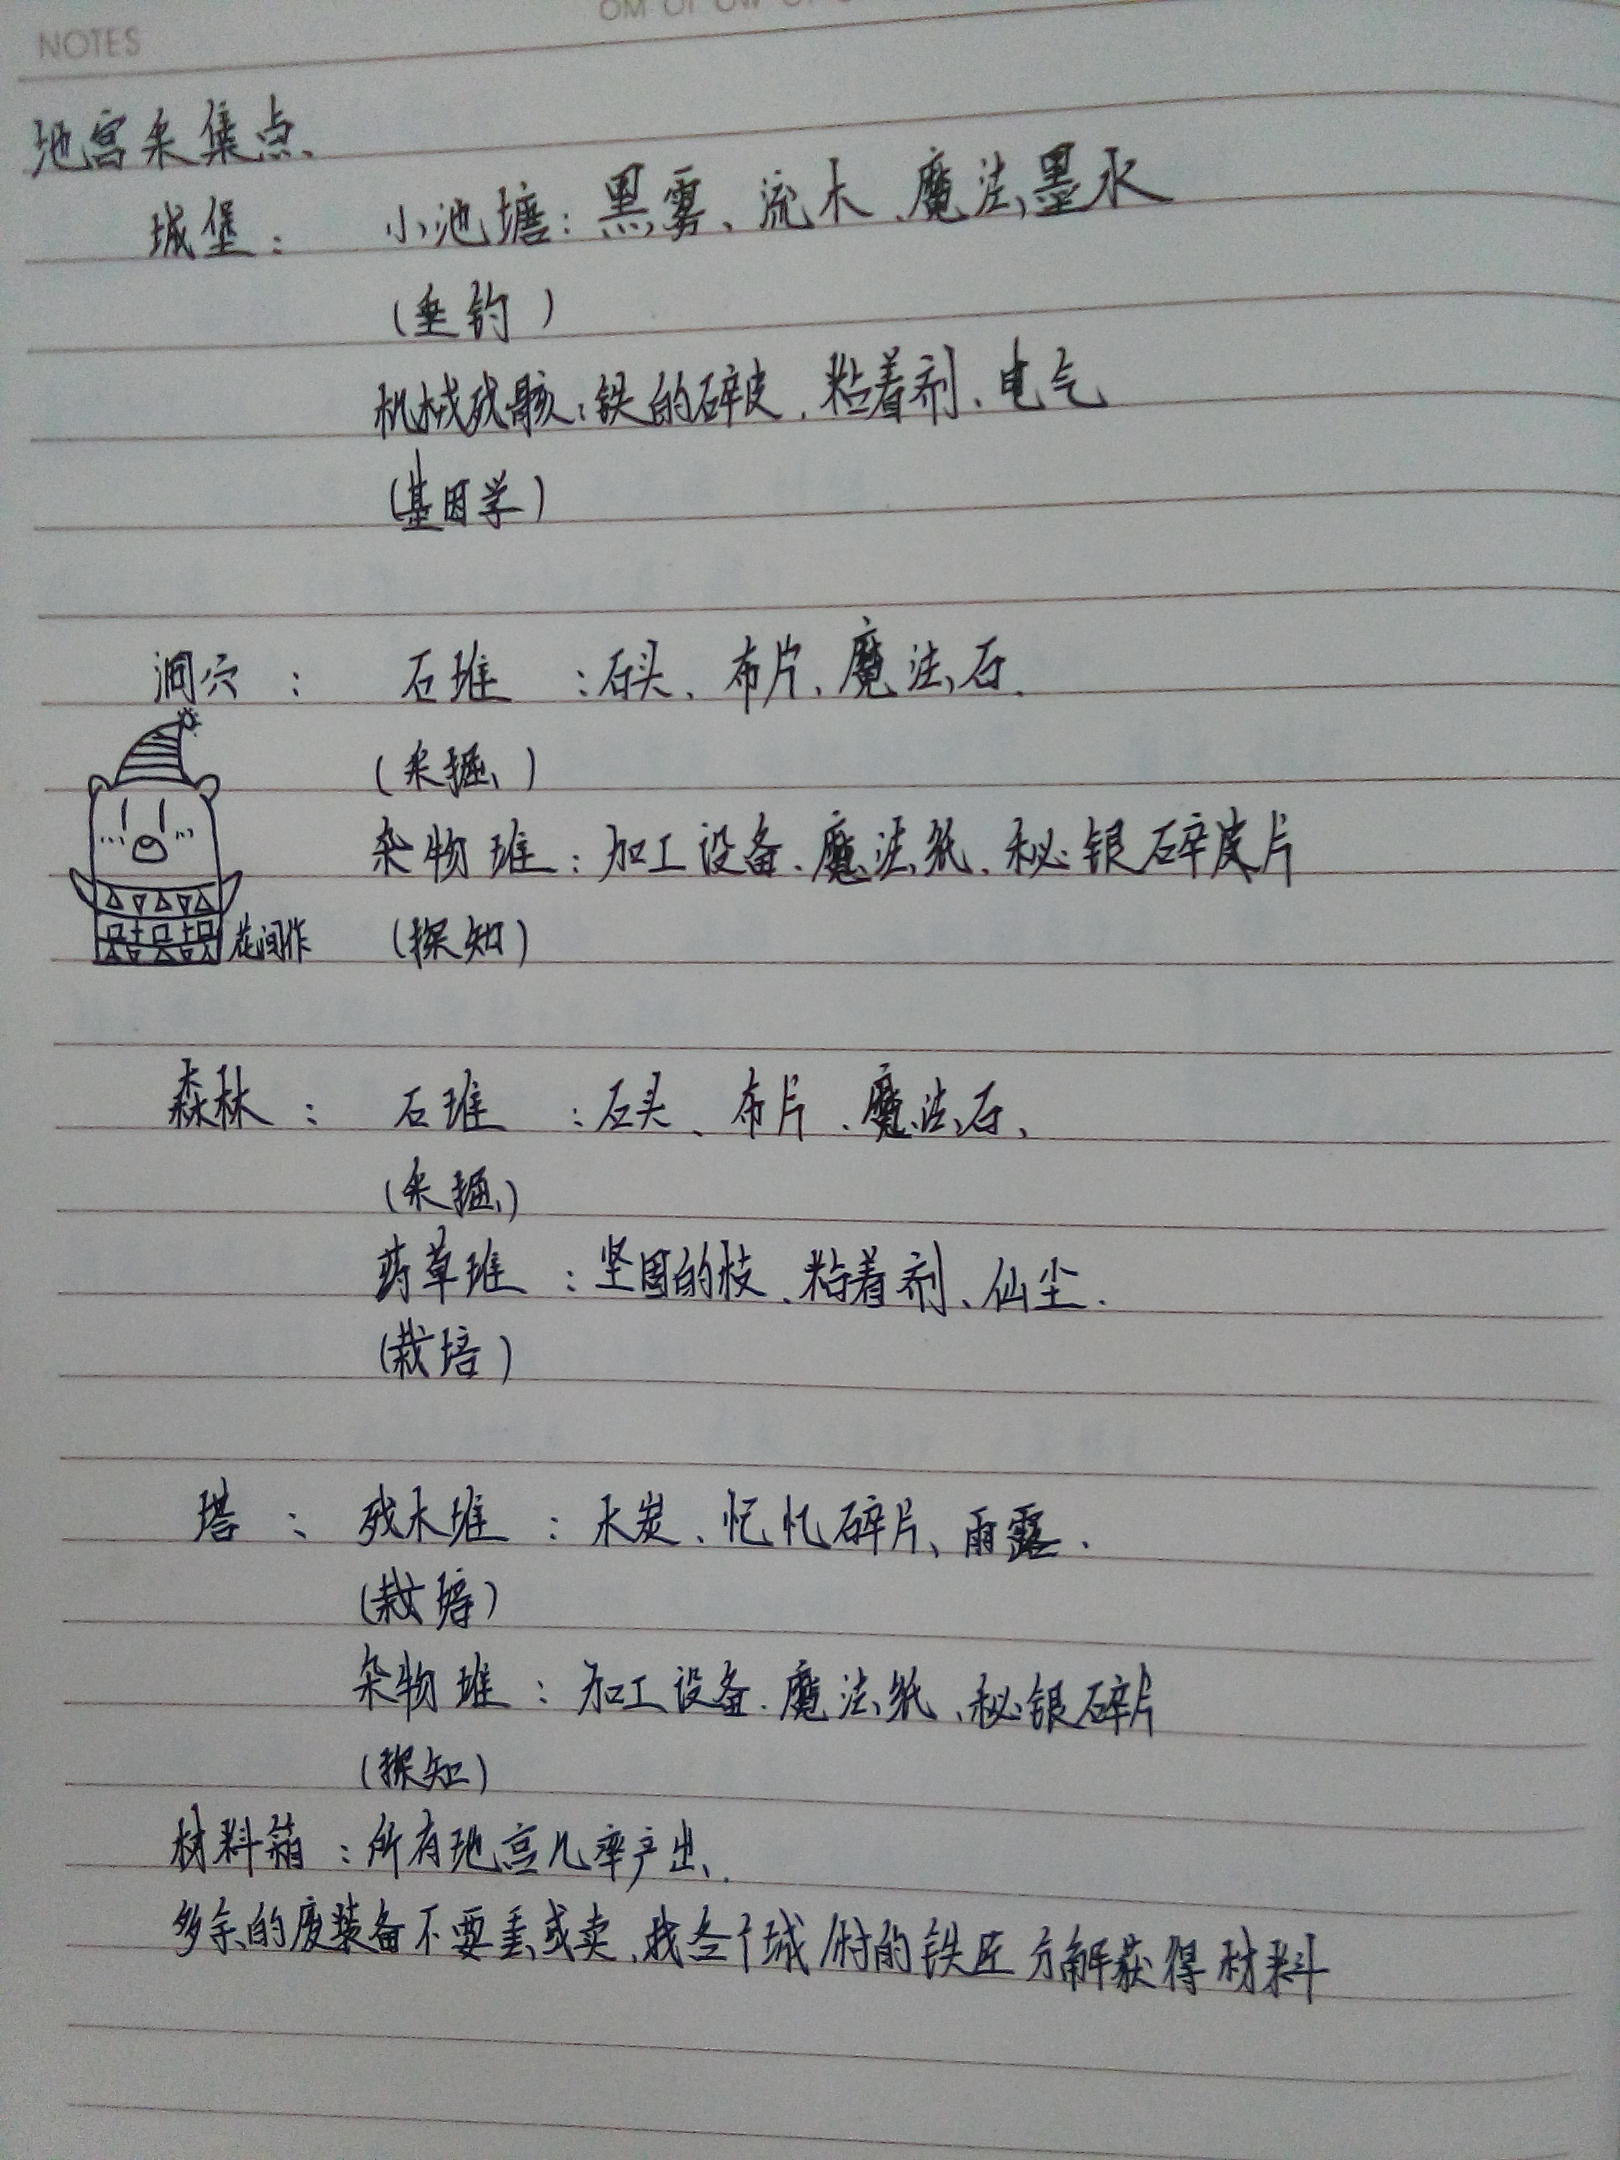 NOTES
地宫采集点、
城堡： 小池塘：黑雾、流木、魔法墨水
（垂钓）
机械残骸：铁的碎皮、粘着剂、电气
（基因学）
洞穴： 石堆 ：石头、布片、魔法石.
（采掘）
杂物堆：加工设备、魔法纸、秘银碎皮片
花间作 （探知）
森林： 石堆 ：石头、布片、魔法石、
（采掘）
药草堆：坚固的枝、粘着剂、仙尘.
（栽培）
塔： 残木堆：木炭、忆忆碎片、雨露.
（栽培）
杂物堆：加工设备、魔法纸、秘银碎片
（探知）
材料箱：所有地宫几率产出、.
多余的废装备不要丢或卖、找各个城/村的铁匠分解获得材料